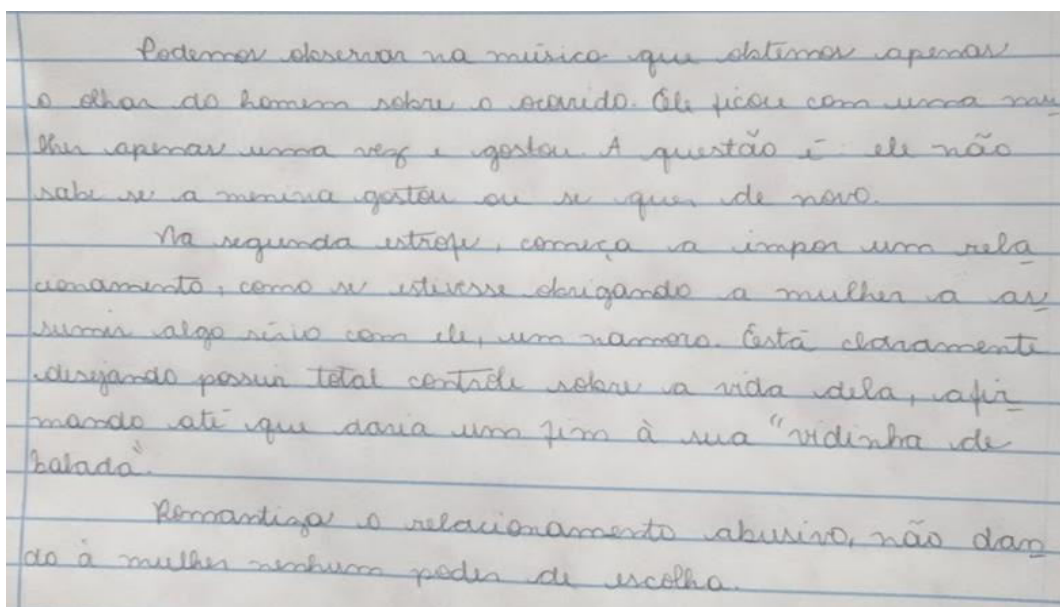 Podemos observar na música que obtimos apenas
o olhar do homem sobre o ocorrido. Ele ficou com uma mu
lher apenas uma vez e gostou. A questão é: ele não
sabe se a menina gostou ou se quer de novo.
Na segunda estrofe, começa a impor um rela
cionamento, como se estivesse obrigando a mulher a as
sumir algo sério com ele, um namoro. Está claramente
desejando possuir total controle sobre a vida dela, afir
mando até que daria um fim à sua "vidinha de
balada".
Romantiza o relacionamento abusivo, não dan
do à mulher nenhum poder de escolha.